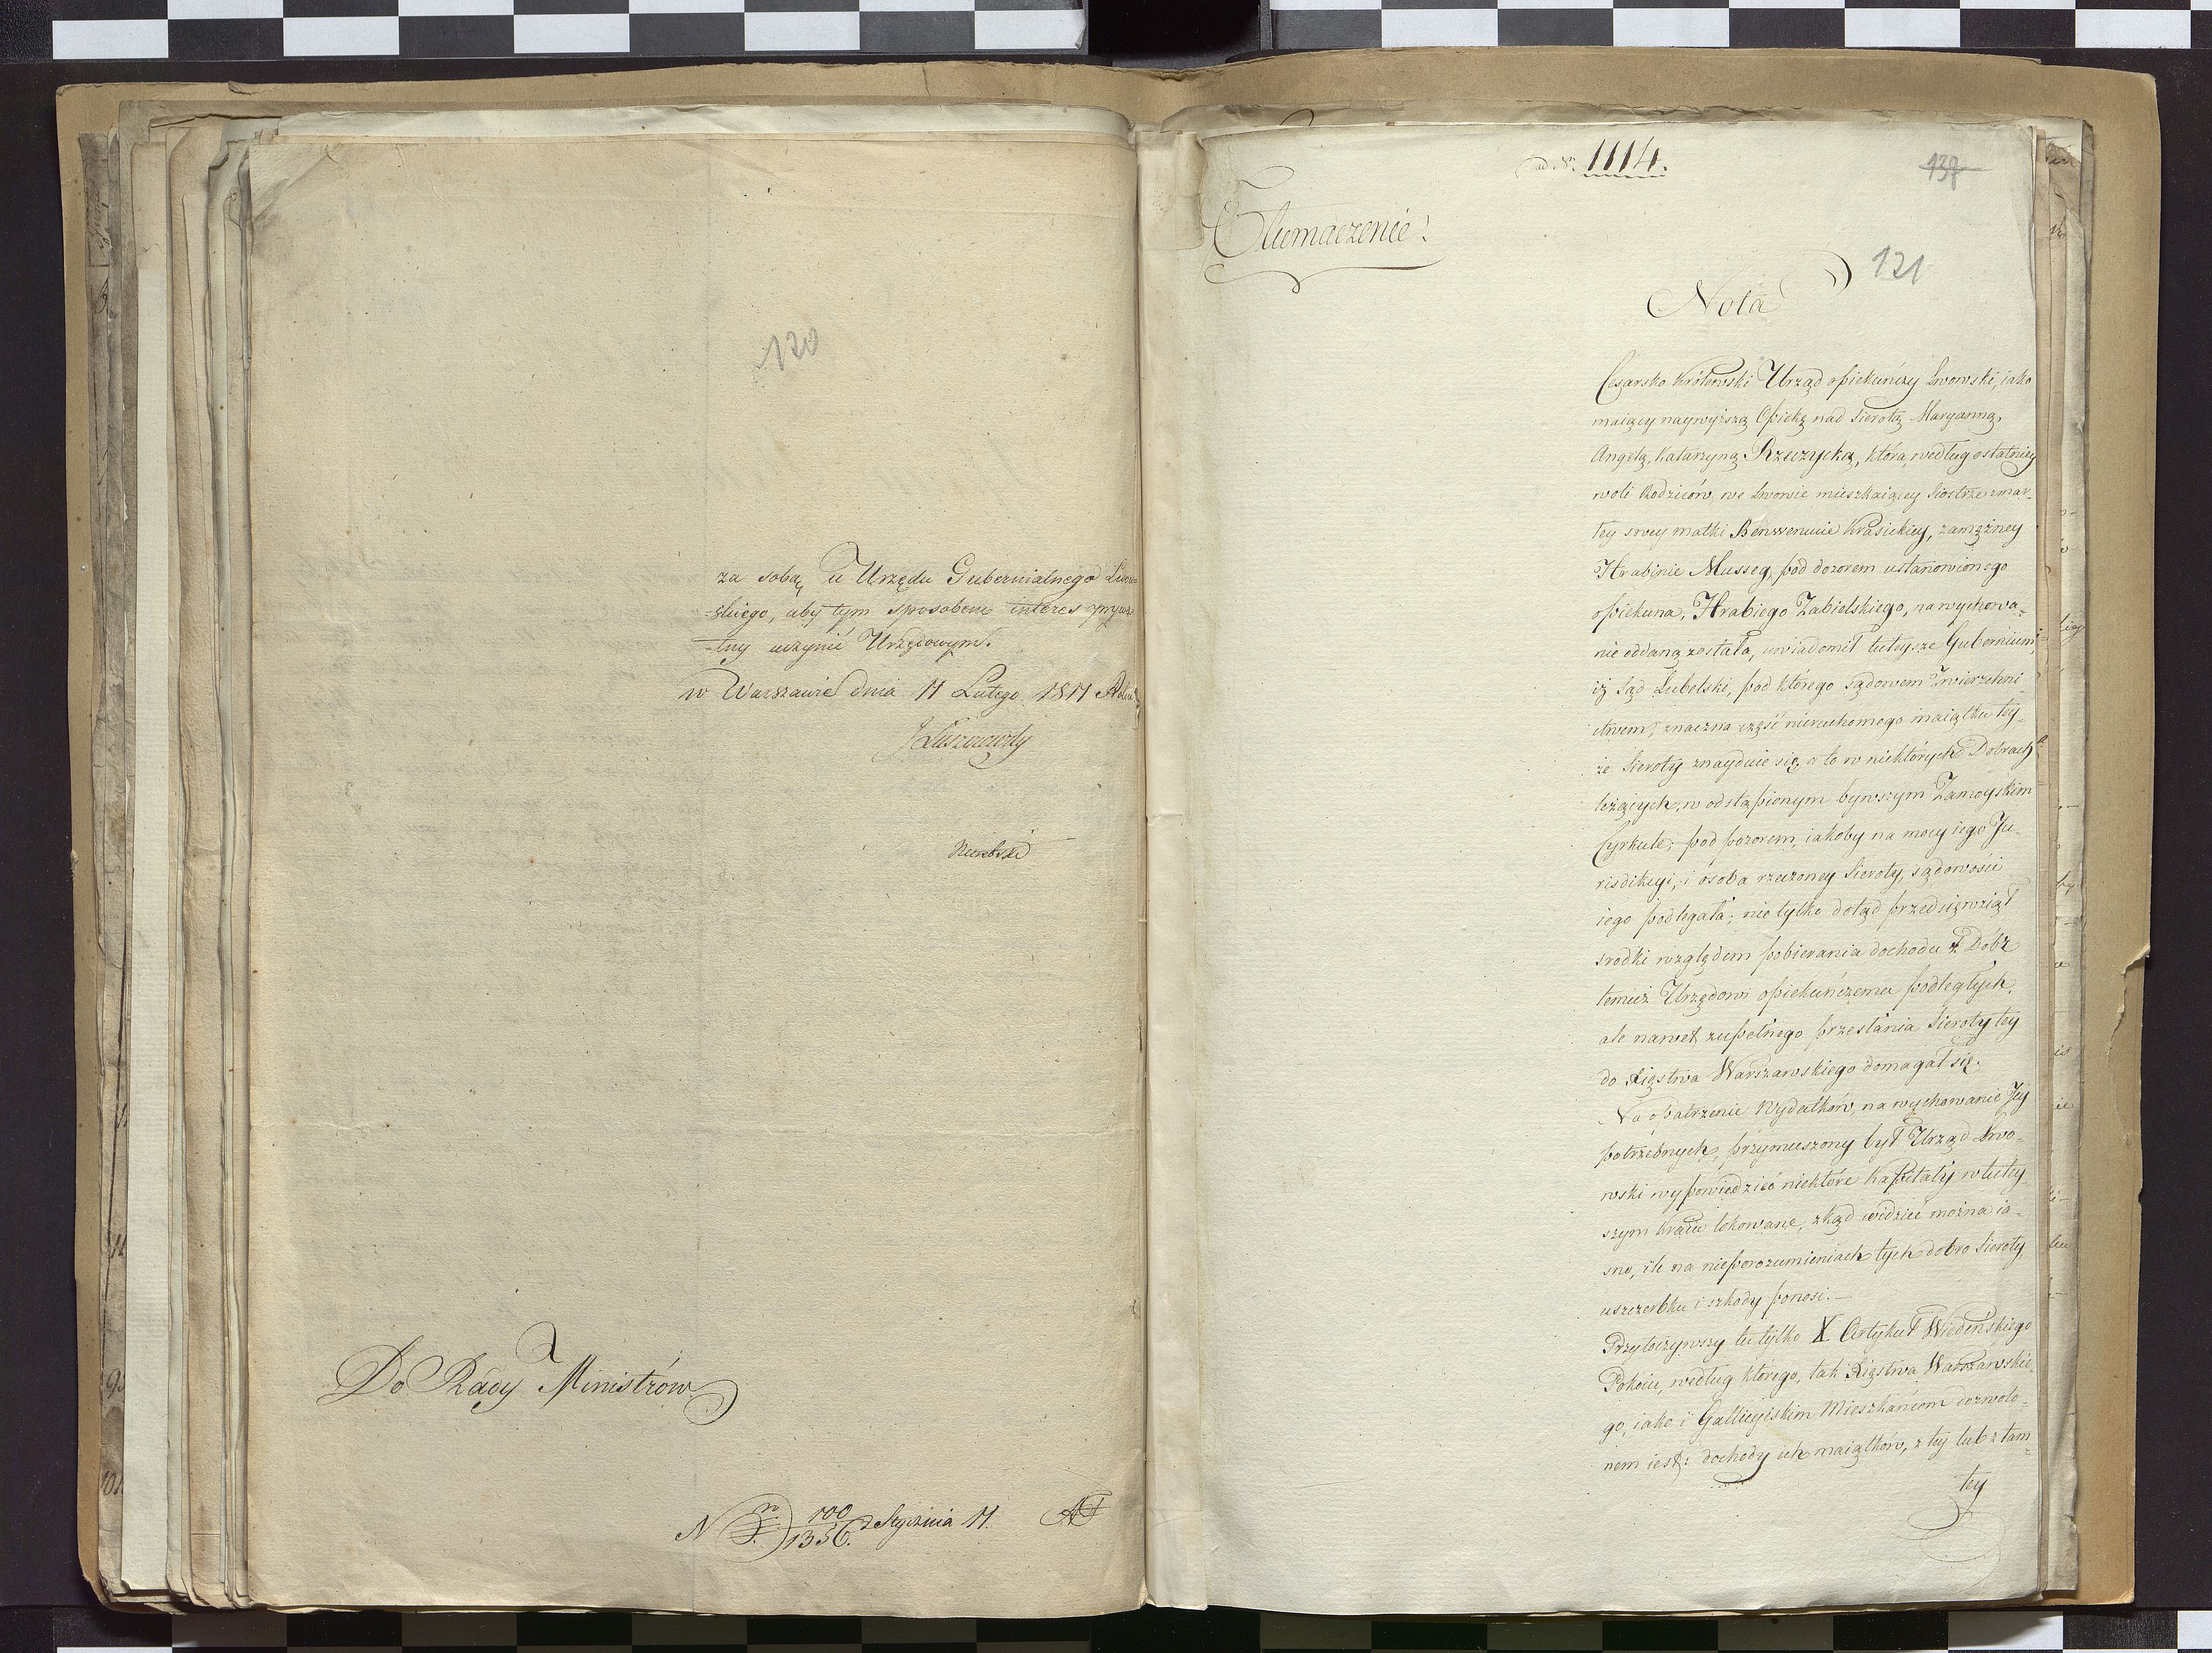 120
za sobą u Urzędu Gubernialnego Lwow-
-skiego, aby tym sposobem interes prywa-
-tny uczynić Urzędowym.
w Warszawie dnia 11 Lutego 1811 Roku
J Łuszczewski
Do Rady Ministrów
N 100
1356. z Stycznia 11.
ad Nr. 1114.
138
Tłumaczenie.
121
Nota
Cesarsko Królewski Urząd opiekuńczy Lwowski, iako
maiący naywyższą Opiekę nad Sierotą Maryanną,
Angelą, Katarzyną Rzeczycką, która według ostatniey
woli Rodziców, we Lwowie mieszkaiącey Siostrze zmar-
tey swey matki Benwenucie Krasickiey, zamężney
Hrabinie Musseg, pod dozorem ustanowionego
opiekuna, Hrabiego Zabielskiego, na wychowa-
nie oddaną została, uwiadomił tuteysze Gubernium,
iż Sąd Lubelski, pod którego sądowem Zwierzchni-
ctwem, znaczna część nieruchomego maiątku tey-
że Sieroty znayduie się, a to w niektórych Dobrach
leżących, w odstąpionym bywszym Zamoyskim
Cyrkule; pod pozorem, iakoby na mocy iego Ju-
risdikcyi, i osoba rzeczoney Sieroty, sądowości
iego podlegała; nie tylko dotąd przedsięwziął
srodki względem pobierania dochodu z Dóbr
temuż Urzędowi opiekuńczemu podległych,
ale nawet zupełnego przesłania Sieroty tey
do Xięstwa Warszawskiego domagał się.
Na opatrzenie Wydatków, na wychowanie Jey
potrzebnych, przymuszony był Urząd Lwo-
wski wypowiedzieć niektóre Kapitały w tutey-
szym kraiu lokowane, zkąd widzieć można ia-
sno, ile na nieporozumieniach tych dobro Sieroty
uszczerbku i szkody ponosi.—
Przytoczywszy tu tylko X. Artykuł Wiedeńskiego
Pokoiu, według którego, tak Xięstwa Warszawskie-
go, iako i Gallicyiskim Mieszkańcom dozwolo-
nem iest: dochody ich maiątków, z tey lub z tam-
tey